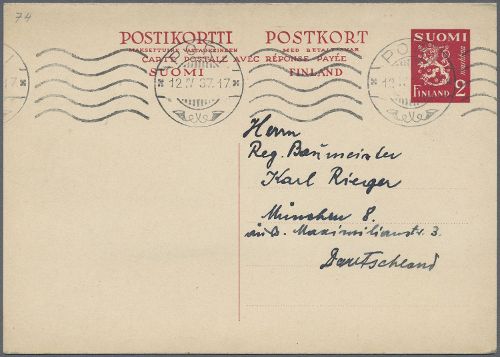 74
POSTIKORTTI POSTKORT
MAKSETTUINE VASTAUKSINEEN MED BETALT SVAR
CARTE POSTALE AVEC RÉPONSE PAYÉE
SUOMI FINLAND
12.IV.37.17
SUOMI
markkaa
FINLAND 2
Herrn
Reg. Baumeister
Karl Rieger
München 8.
Maximilianstr. 3.
Deutschland